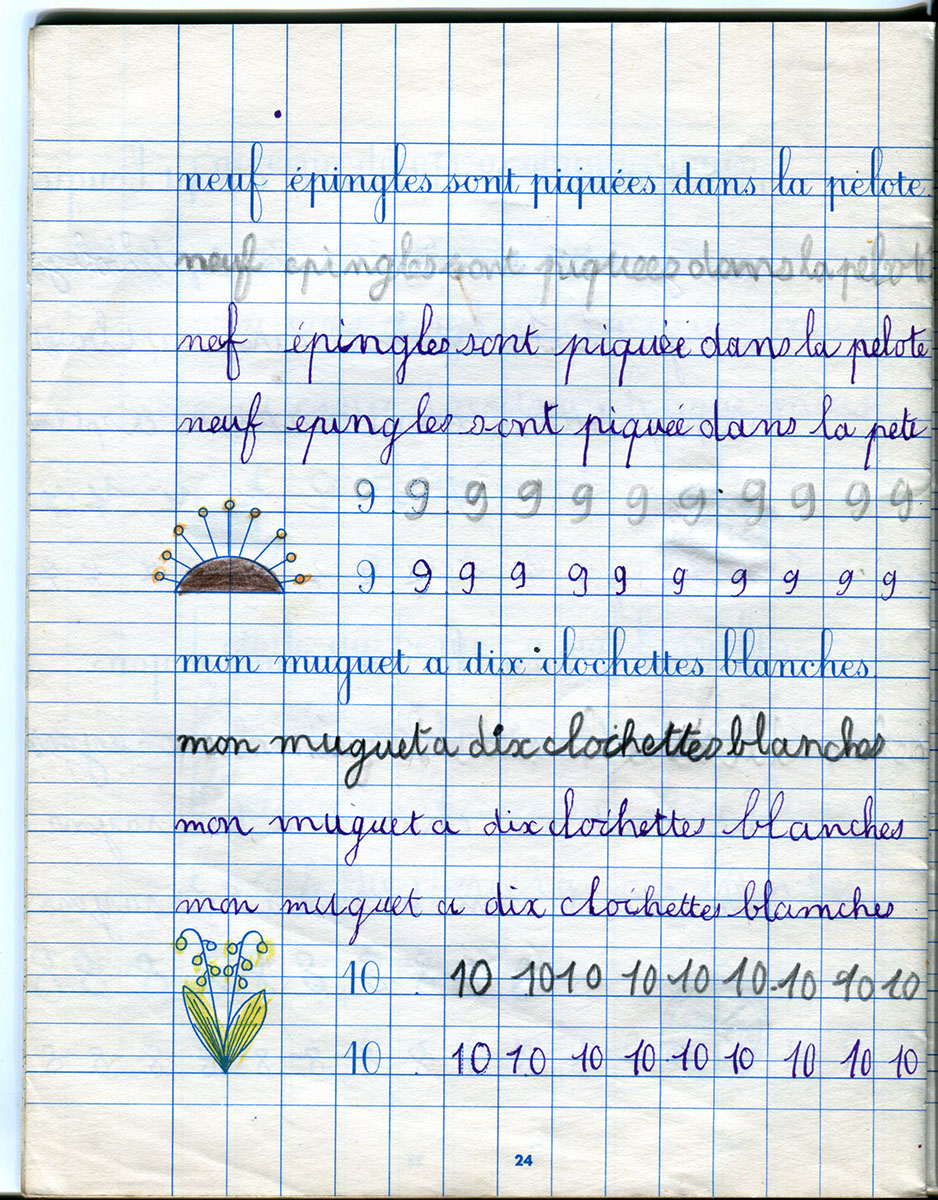 neuf épingles sont piquées dans la pelote
neuf epingles sont piquees dans la pelote
nef épingles sont piquée dans la pelote
neuf epingles sont piquée dans la pete
9 9 9 9 9 9 9 9 9 9 9
9 9 9 9 9 9 9 9 9 9 9
mon muguet a dix clochettes blanches
mon muguet a dix clochettes blanches
mon muguet a dix clochettes blanches
mon muguet a dix clochettes blamches
10 10 10 10 10 10 10 10 10 10
10 10 10 10 10 10 10 10 10 10
24